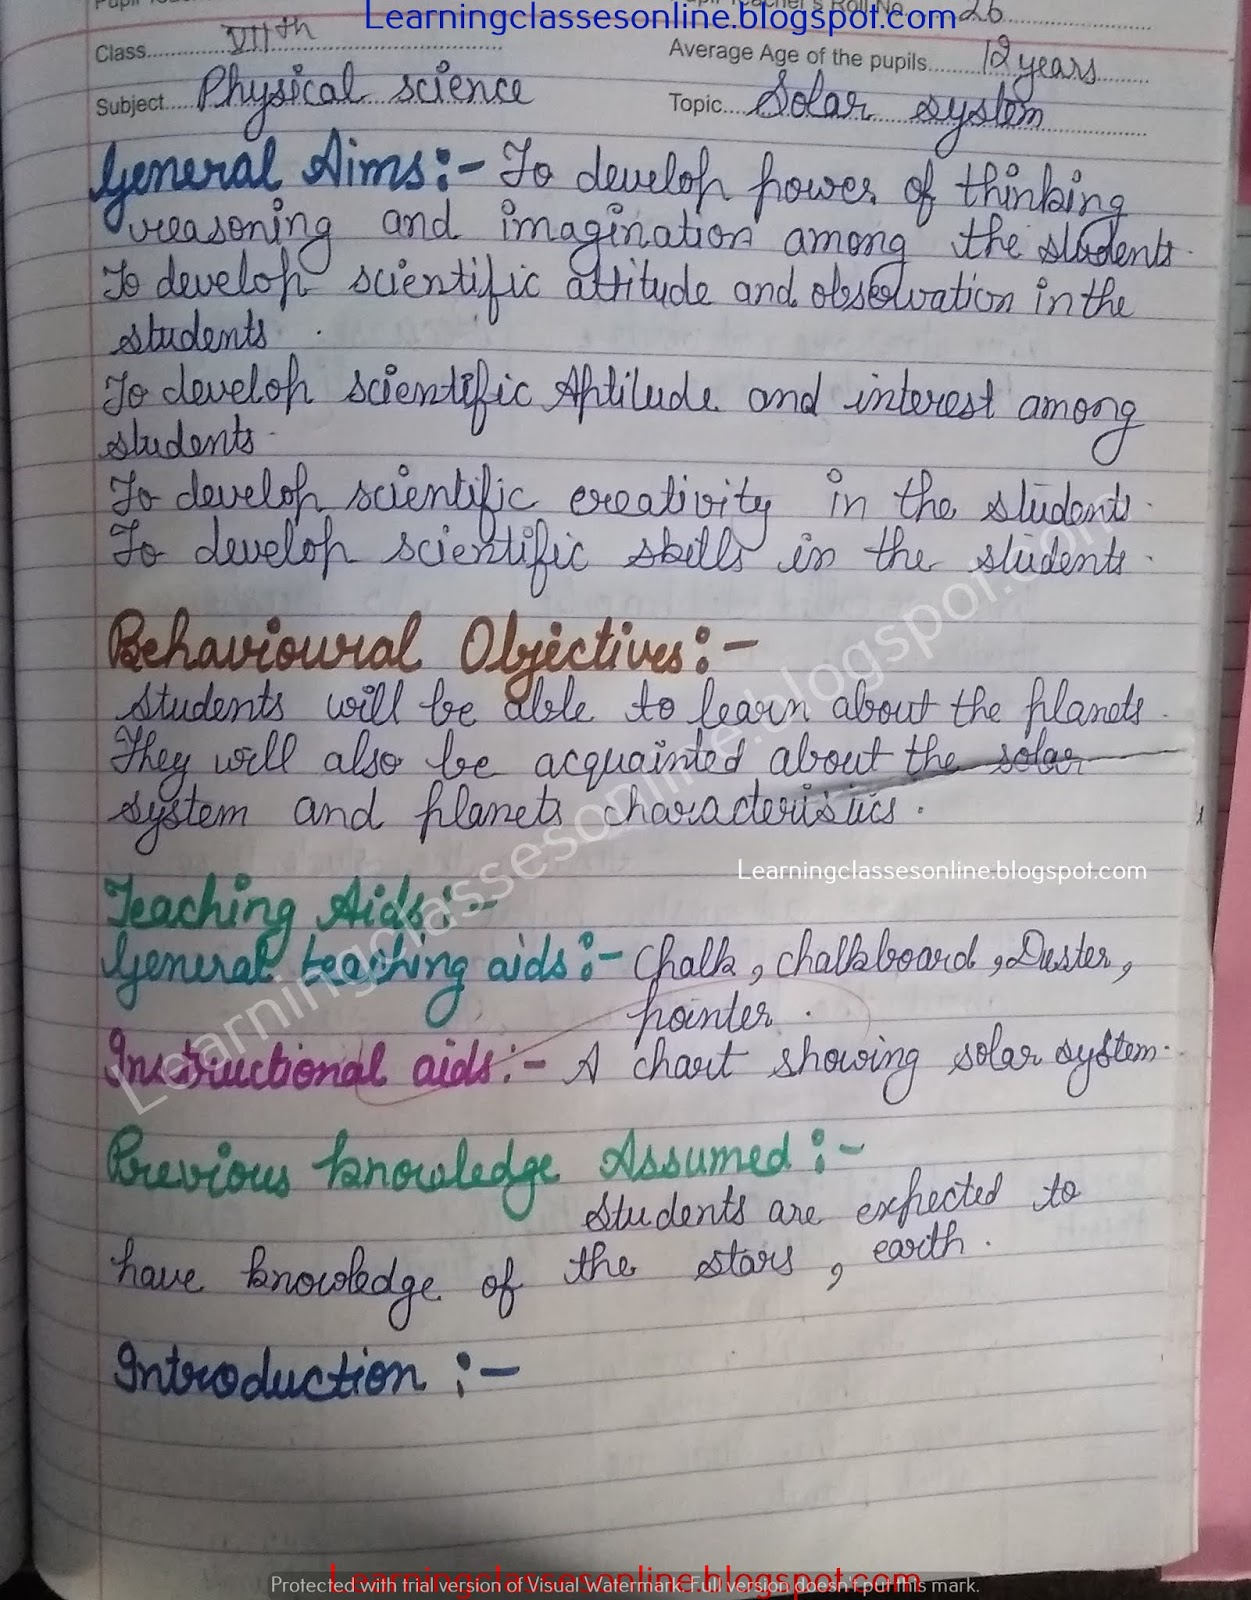 Learningclassesonline.blogspot.com
26
Class VIIth Average Age of the pupils 12 years
Subject Physical science Topic Solar system
General Aims:- To develop power of thinking
reasoning and imagination among the students.
To develop scientific attitude and observation in the
students.
To develop scientific Aptitude and interest among
students.
To develop scientific creativity in the students.
To develop scientific skills in the students.
Behavioural Objectives:-
Students will be able to learn about the planets.
They will also be acquainted about the solar
system and planets characteristics.
Learningclassesonline.blogspot.com
Learningclassesonline.blogspot.com
Teaching Aids:-
General teaching aids:- Chalk, chalkboard, Duster,
pointer.
Instructional aids:- A chart showing solar system.
Previous knowledge Assumed:-
Students are expected to
have knowledge of the stars, earth.
Introduction:-
Learningclassesonline.blogspot.com
Protected with trial version of Visual Watermark. Full version doesn't put this mark.